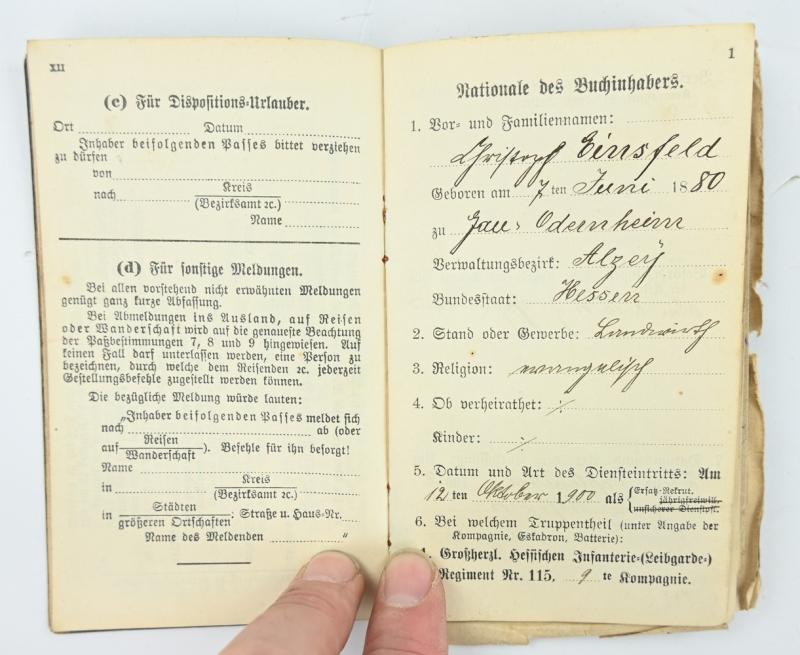 XII
(c) Für Dispositions-Urlauber.
Ort Datum
Inhaber beifolgenden Passes bittet verziehen
zu dürfen
von
nach Kreis
(Bezirksamt ꝛc.)
Name
(d) Für sonstige Meldungen.
Bei allen vorstehend nicht erwähnten Meldungen
genügt ganz kurze Abfassung.
Bei Abmeldungen ins Ausland, auf Reisen
oder Wanderschaft wird auf die genaueste Beachtung
der Paßbestimmungen 7, 8 und 9 hingewiesen. Auf
keinen Fall darf unterlassen werden, eine Person zu
bezeichnen, durch welche dem Reisenden ꝛc. jederzeit
Gestellungsbefehle zugestellt werden können.
Die bezügliche Meldung würde lauten:
„Inhaber beifolgenden Passes meldet sich
nach ab (oder
auf Reisen
Wanderschaft). Befehle für ihn besorgt!
Name
in Kreis
(Bezirksamt ꝛc.)
in Städten
größeren Ortschaften: Straße u. Haus-Nr.
Name des Meldenden "
1
Nationale des Buchinhabers.
1. Vor- und Familiennamen:
Christoph Einsfeld
Geboren am 7 ten Juni 1880
zu Gau-Odernheim
Verwaltungsbezirk: Alzey
Bundesstaat: Hessen
2. Stand oder Gewerbe: Landwirth
3. Religion: evangelisch
4. Ob verheirathet: ·/.
Kinder: ·/.
5. Datum und Art des Diensteintritts: Am
12 ten Oktober 1900 als Ersatz-Rekrut.
jährigfreiwill.
unsicherer Dienstpfl.
6. Bei welchem Truppentheil (unter Angabe der
Kompagnie, Eskadron, Batterie):
1. Großherzl. Hessischen Infanterie-(Leibgarde-)
Regiment Nr. 115, 9 te Kompagnie.